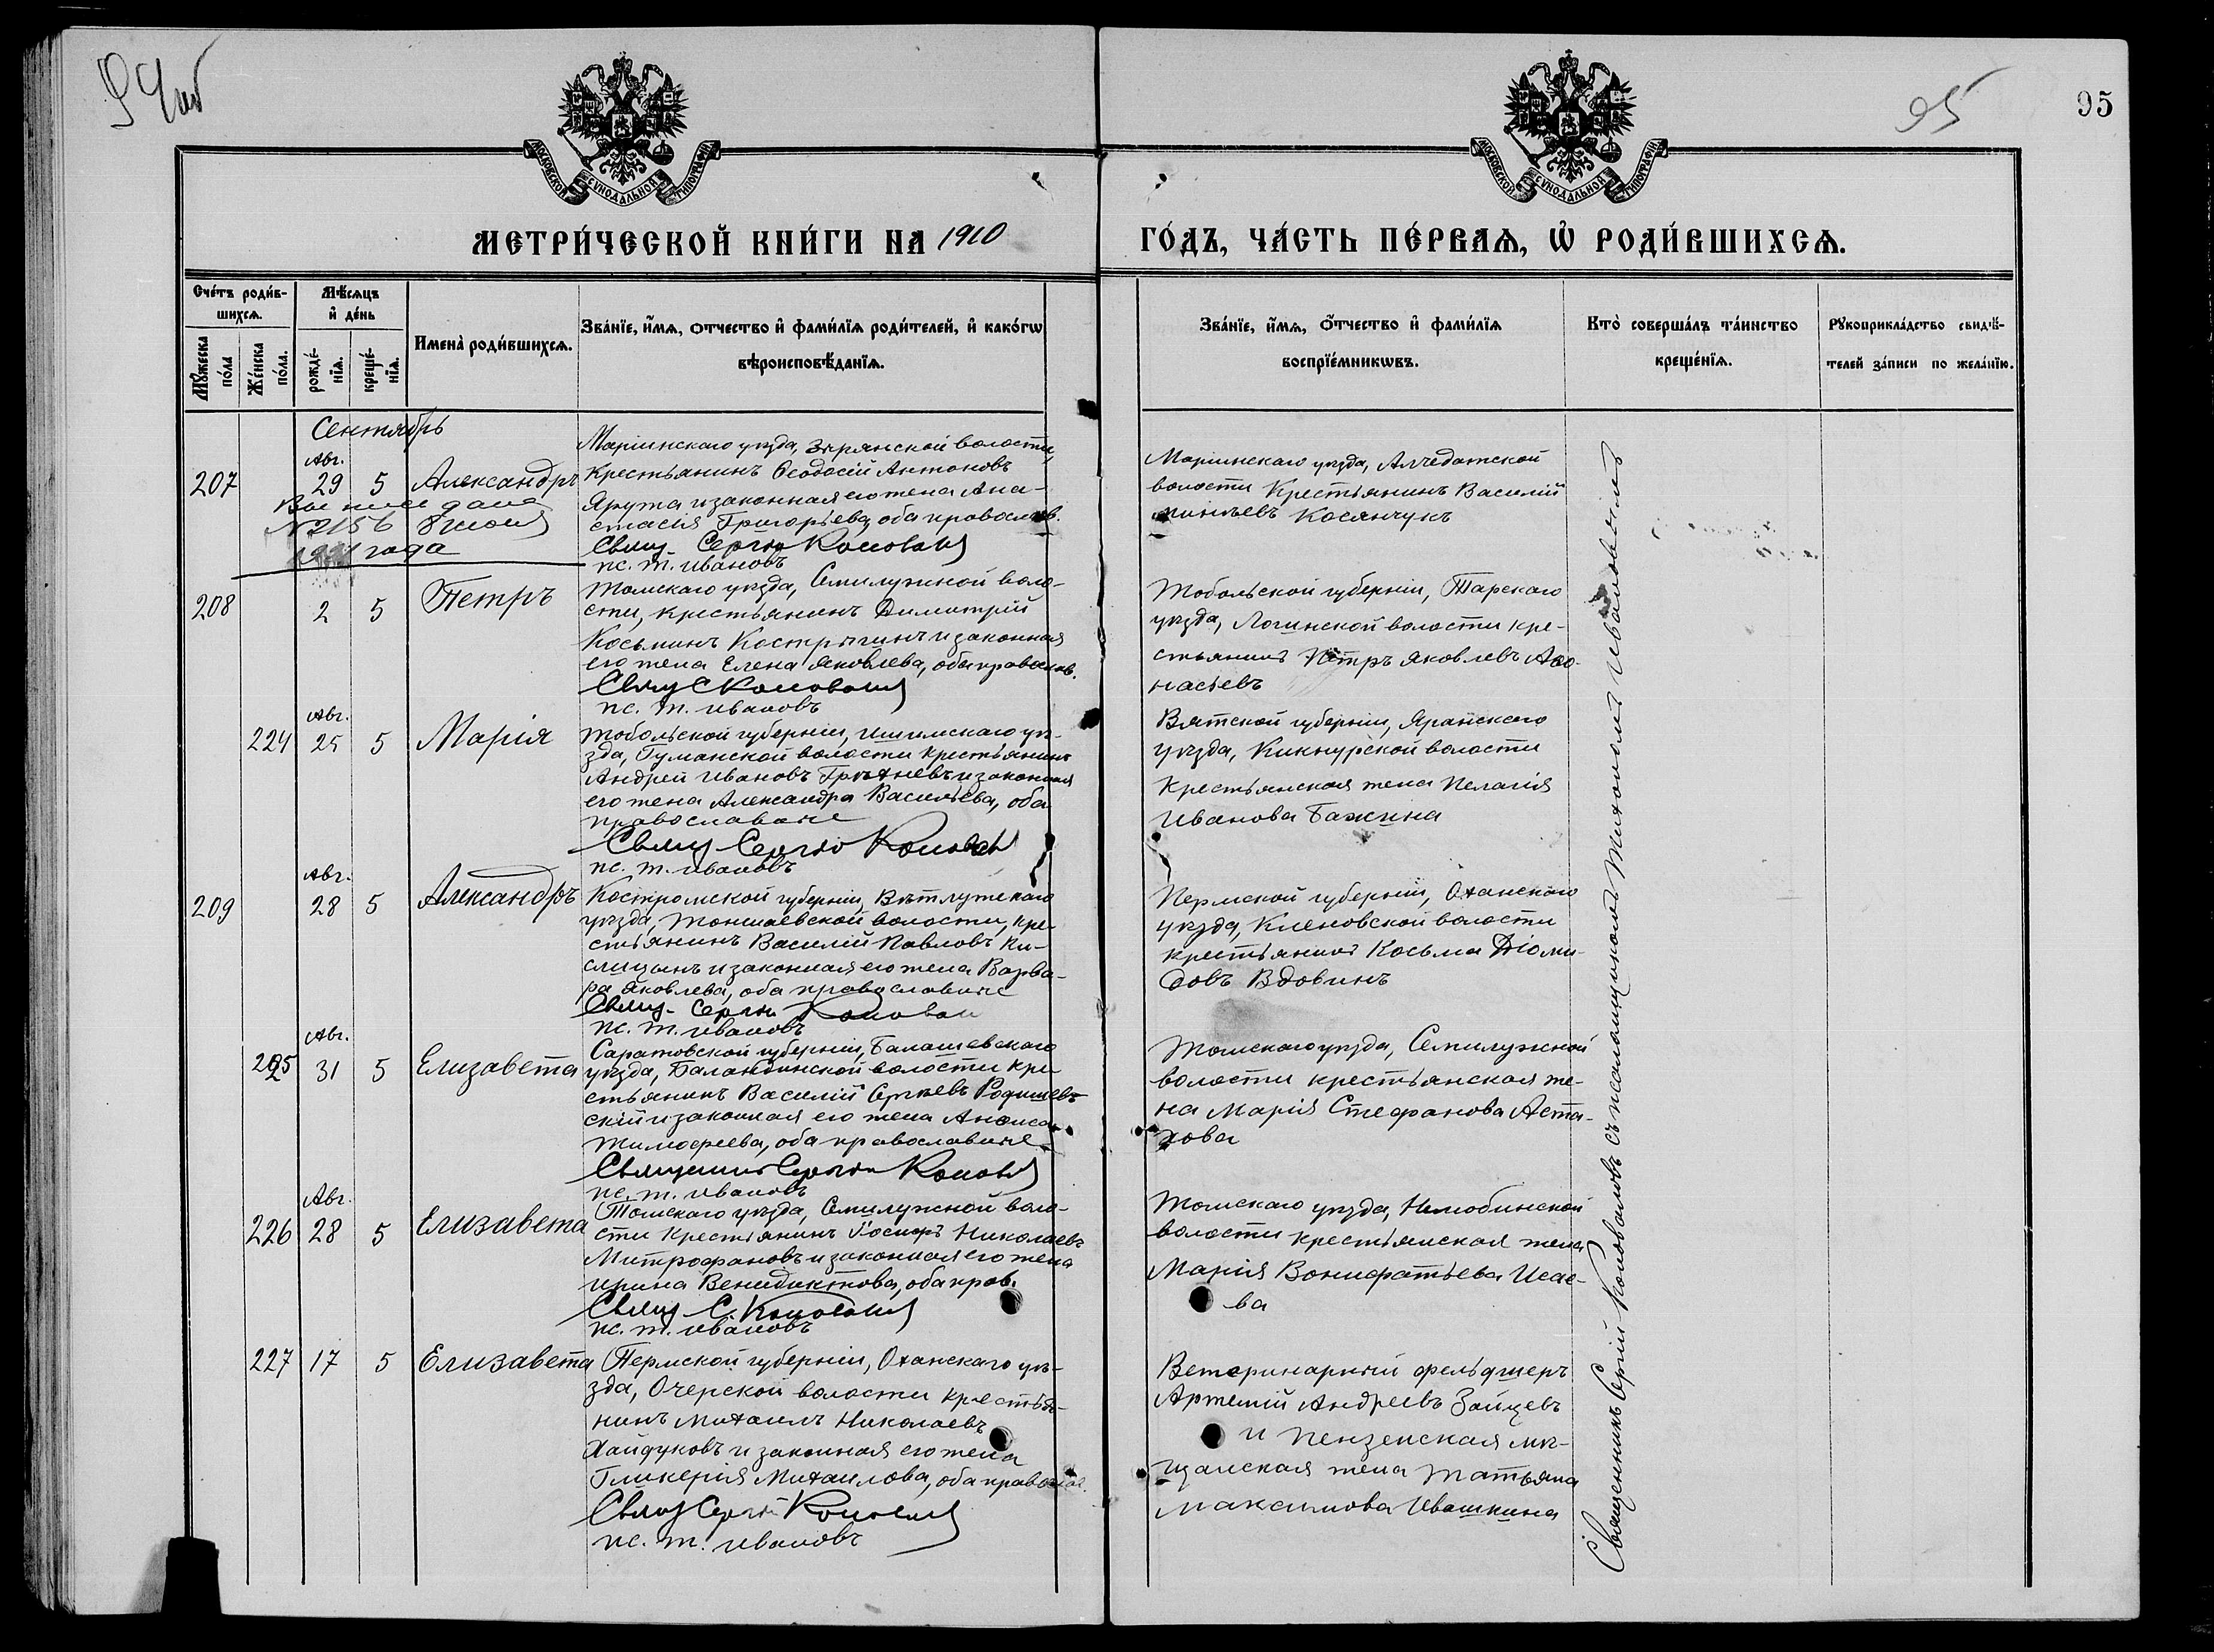 95
95
МОСКОВСКОЙ СѴНОДАЛЬНОЙ ТИПОГРАФІИ
МОСКОВСКОЙ СѴНОДАЛЬНОЙ ТИПОГРАФІИ
МЕТРИ́ЧЕСКОЙ КНИ́ГИ НА 1910
ГО́ДЪ, ЧА́СТЬ ПЕ́РВАѦ, Ѡ҆ РОДИ́ВШИХСѦ.
Сче́тъ роди́в-
шихсѧ.
Мꙋ́жеска по́ла
Же́нска по́ла.
Мѣ́сѧцъ
и҆ де́нь
рожде́-
нїѧ.
креще́-
нїѧ.
Имена̀ роди́вшихсѧ.
Зва́нїе, и҆́мѧ, ѻ҆́тчество и҆ фами́лїѧ роди́телей, и҆ како́гѡ
вѣроисповѣ́данїѧ.
Зва́нїе, и҆́мѧ, ѻ҆́тчество и҆ фами́лїѧ
воспрїе́мникѡвъ.
Кто̀ соверша́лъ та́инство
креще́нїѧ.
Рꙋкоприкла́дство свидѣ́-
телей за́писи по жела́нїю.
Сентябрь
207
Авг.
29 5 Александръ
Выпись дана
№2156 8 июня
года
Маріинскаго уѣзда, Зырянской волости,
крестьянинъ Ѳеодосій Антоновъ
Ярута и законная его жена Ана-
стасія Григорьева, оба православ.
Свящ. Сергій Коновал
пс. Т. Ивановъ
Маріинскаго уѣзда, Алчедатской
волости крестьянинъ Василій
Косянчукъ
208 2 5 Петръ
Томскаго уѣзда, Семилужной воло-
сти, крестьянинъ Димитрій
Косьминъ Кострыгинъ и законная
его жена Елена Яковлева, оба православ.
Свящ С Коновал
пс. Т. Ивановъ
Тобольской губерніи, Тарскаго
уѣзда, Логинской волости кре-
стьянинъ Петръ Яковлевъ Аѳо-
насьевъ
224
Авг.
25 5 Марія
Тобольской губерніи, Ишимскаго уѣ-
зда, Туманской волости крестьянинъ
Андрей Ивановъ Грѣхневъ и законная
его жена Александра Васильева, оба
православные
Свящ Сергій Коновал
пс. Т. Ивановъ
Вятской губерніи, Яранскаго
уѣзда, Кикнурской волости
крестьянская жена Пелагія
Иванова Бажина
209
Авг.
28 5 Александръ
Костромской губерніи, Ветлужскаго
уѣзда, Тоншаевской волости, кре-
стьянинъ Василій Павловъ Ки-
слицынъ и законная его жена Варва-
ра Яковлева, оба православные
Свящ. Сергій Коновал
пс. Т. Ивановъ
Пермской губерніи, Оханскаго
уѣзда, Кленовской волости
крестьянинъ Косьма Діоми-
довъ Вдовинъ
225
Авг.
31 5 Елизавета
Саратовской губерніи, Балашевскаго
уѣзда, Баландинской волости кре-
стьянинъ Василій Сергѣевъ Родишев-
скій и законная его жена Анѳиса
Тимофеева, оба православные
Священникъ Сергій Коновал
пс. Т. Ивановъ
Томскаго уѣзда, Семилужной
волости крестьянская же-
на Марія Стефанова Аста-
хова
226
Авг.
28 5 Елизавета
Томскаго уѣзда, Семилужной воло-
сти крестьянинъ Іосифъ Николаевъ
Митрофановъ и законная его жена
Ирина Венедиктова, оба прав.
Свящ С. Коновал
пс. Т. Ивановъ
Томскаго уѣзда, Нелюбинской
волости крестьянская жена
Марія Вонифатьева Исае-
ва
227 17 5 Елизавета
Пермской губерніи, Оханскаго уѣ-
зда, Очерской волости крестья-
нинъ Михаилъ Николаевъ
Хайдуковъ и законная его жена
Гликерія Михаилова, оба православ.
Свящ Сергій Коновал
пс. Т. Ивановъ
Ветеринарный фельдшеръ
Артемій Андреевъ Зайцевъ
и пензенская мѣ-
щанская жена Татьяна
Максимова Ивашкина
Священникъ Сергій Коноваловъ съ псаломщикомъ Тихономъ Ивановымъ